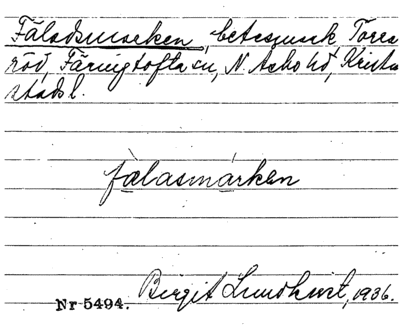 Fäladsmarken, betesmark, Tores
röd, Färingtofta sn, N. Åsbo hd, Kristian
stads l.
fàlasmárken
Nr 5494. Birgit Lundkvist, 1936.